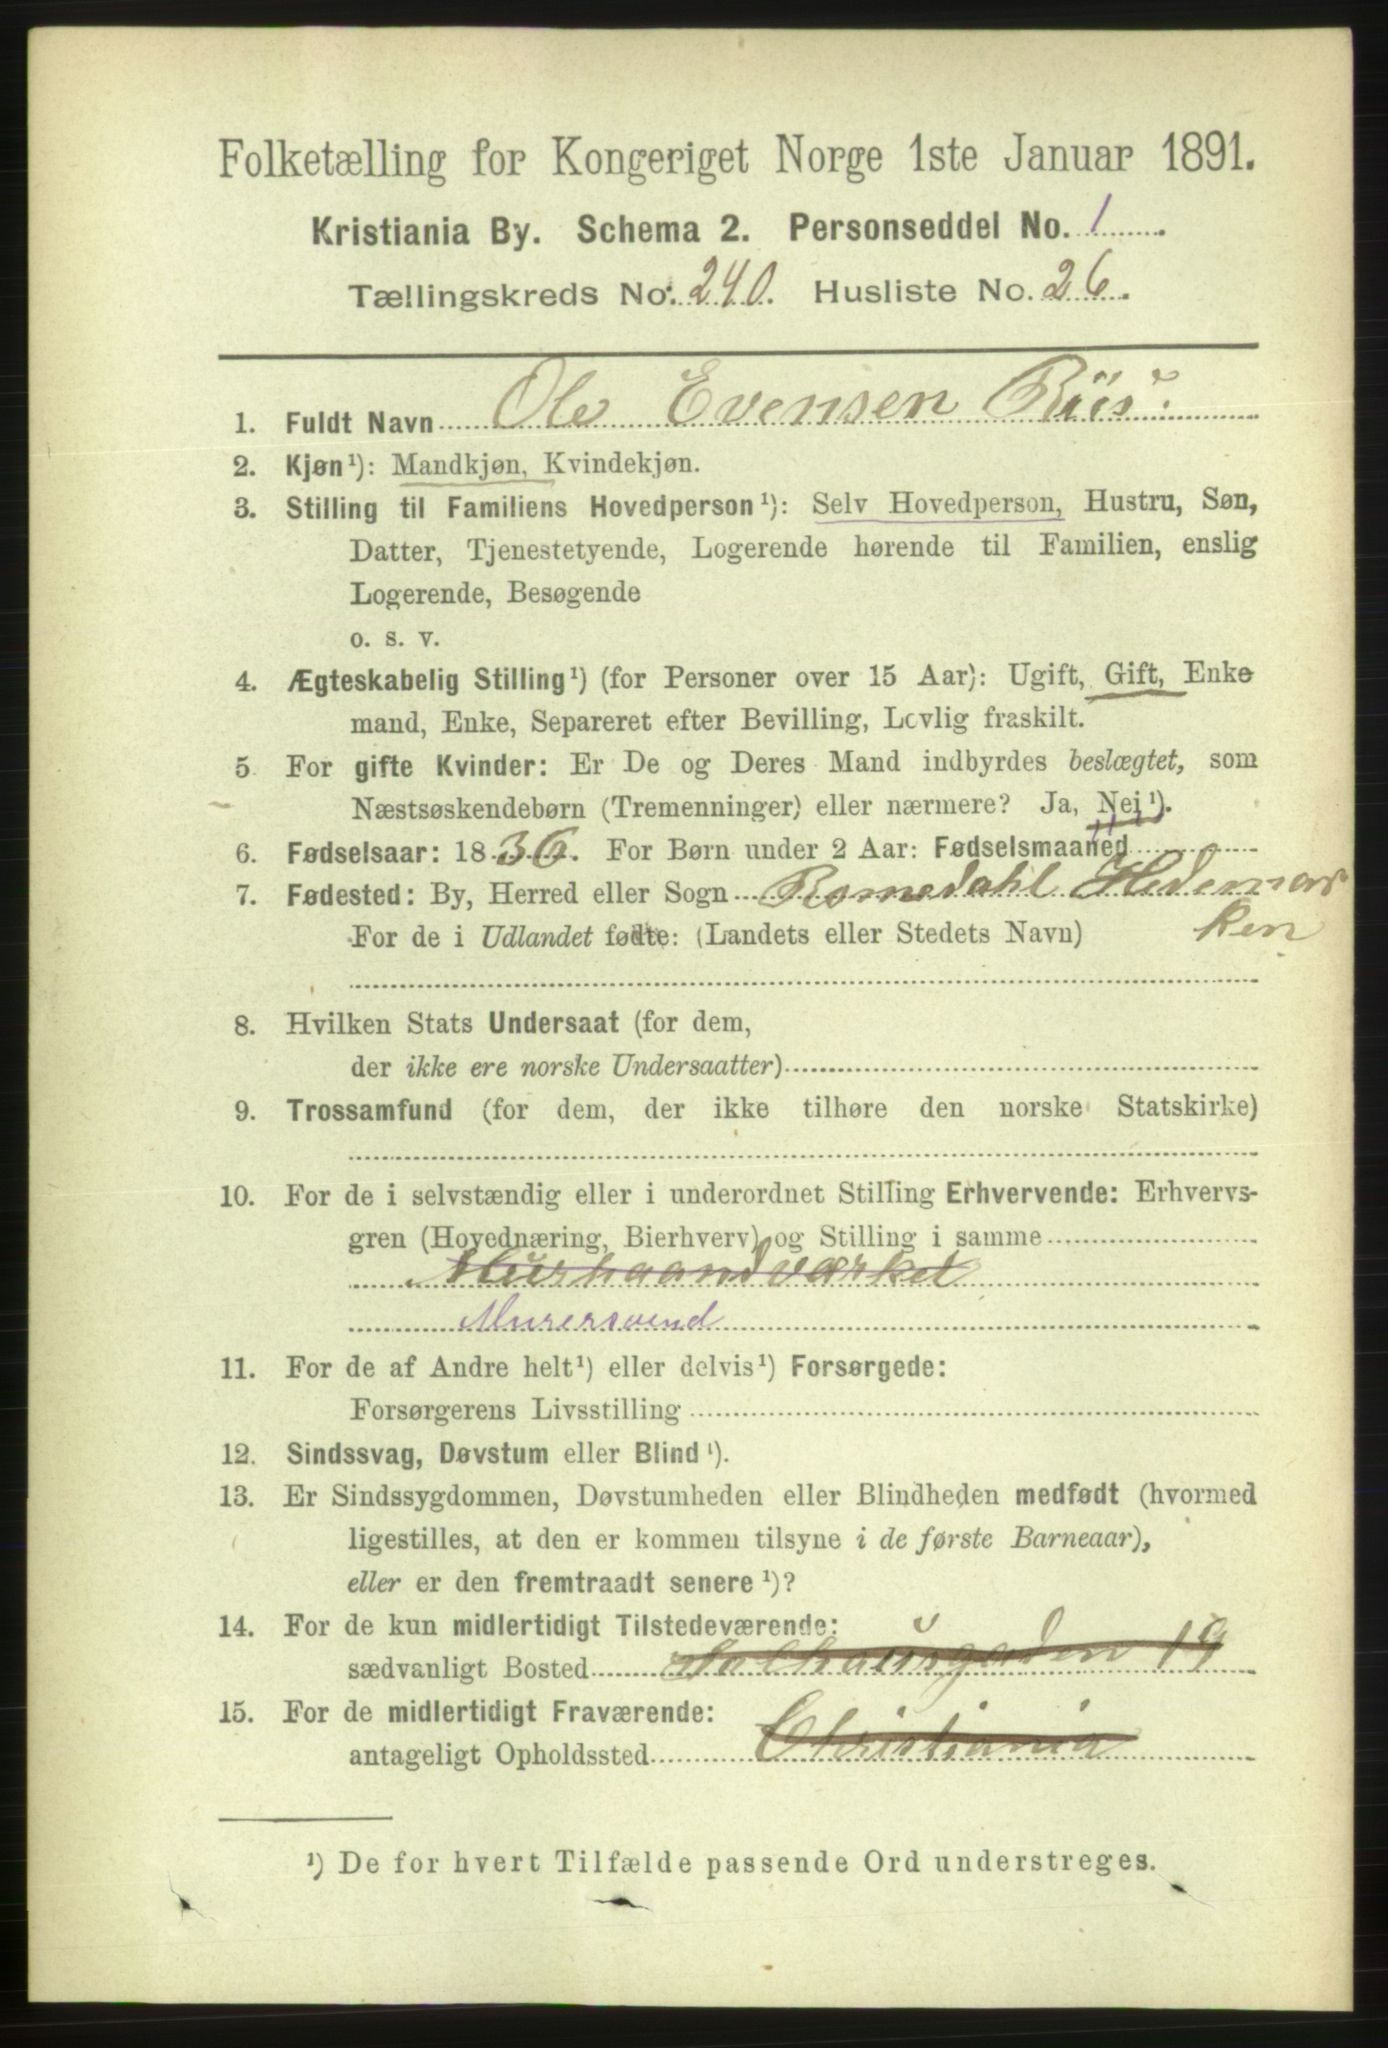 Folketælling for Kongeriget Norge 1ste Januar 1891.
Kristiania By. Schema 2. Personseddel No. 1.
Tællingskreds No. 240. Husliste No. 26.
1. Fuldt Navn Ole Evensen Riis.
2. Kjøn¹): Mandkjøn, Kvindekjøn.
3. Stilling til Familiens Hovedperson¹): Selv Hovedperson, Hustru, Søn,
Datter, Tjenestetyende, Logerende hørende til Familien, enslig
Logerende, Besøgende
o. s. v.
4. Ægteskabelig Stilling¹) (for Personer over 15 Aar): Ugift, Gift, Enke
mand, Enke, Separeret efter Bevilling, Lovlig fraskilt.
5 For gifte Kvinder: Er De og Deres Mand indbyrdes beslægtet, som
Næstsøskendebørn (Tremenninger) eller nærmere? Ja, Nei¹).
6. Fødselsaar: 1836. For Børn under 2 Aar: Fødselsmaaned
7. Fødested: By, Herred eller Sogn Romedahl Hedemar
For de i Udlandet fødte: (Landets eller Stedets Navn) ken
8. Hvilken Stats Undersaat (for dem,
der ikke ere norske Undersaatter)
9. Trossamfund (for dem, der ikke tilhøre den norske Statskirke)
10. For de i selvstændig eller i underordnet Stilling Erhvervende: Erhvervs-
gren (Hovednæring, Bierhverv) og Stilling i samme
Murhaandværket
Murersvend
11. For de af Andre helt¹) eller delvis¹) Forsørgede:
Forsørgerens Livsstilling
12. Sindssvag, Døvstum eller Blind¹).
13. Er Sindssygdommen, Døvstumheden eller Blindheden medfødt (hvormed
ligestilles, at den er kommen tilsyne i de første Barneaar),
eller er den fremtraadt senere¹)?
14. For de kun midlertidigt Tilstedeværende:
sædvanligt Bosted 19
15. For de midlertidigt Fraværende:
antageligt Opholdssted Christiania
¹) De for hvert Tilfælde passende Ord understreges.